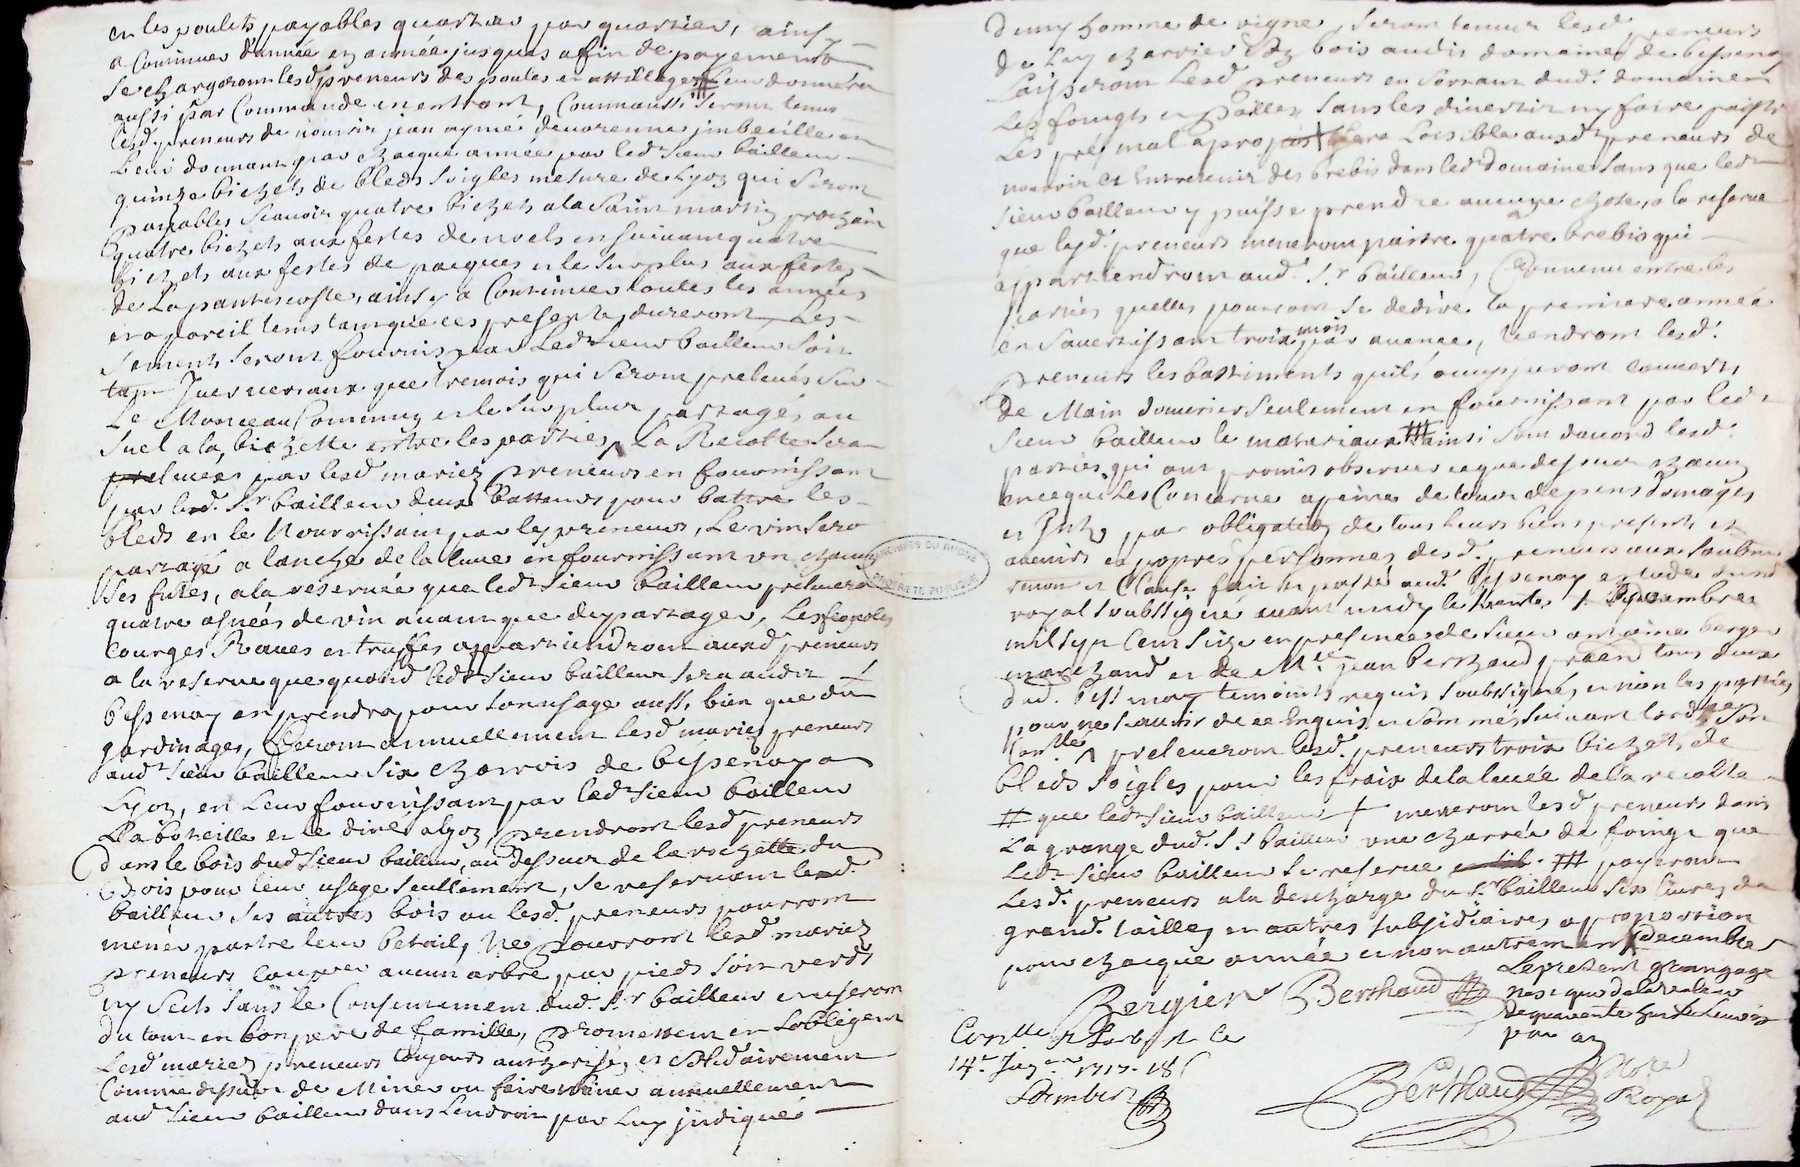 et les poulets payables quartier par quartier, ainsy
a Continuer d'année en année jusques a fin de payement
Se chargeront lesd. preneurs des poules et attillages # leur donnera
aussi par Commande en entrant, Comme aussi seront tenus
lesd. preneurs de nourrir jean aymé devarenne imbecille en
Leur donnant par chacque année par ledt sieur bailleur
quinze bichets de bleds soigles mesure de Lyon qui seront
payables scauoir quatre bichets a la saint martin prochain
quatre bichets aux festes de noels ensuiuant quatre
bichets aux festes de pacques et le surplus aux festes
de La pantecoste, ainsy a Continuer toutes les années
et a pareil tems tant que ces presentes dureront, Les
semens seront fournis par Ledt Sieur bailleur soit
tant Yuernaux que tremois qui seront preleués sur
Le Monceau Commung et le surplus partagés au
suel a la bichette entre les parties, La Recolte sera
preleuée par lesd. mariez preneurs en fournissant
par led. Sr bailleur deux batteurs pour battre les
bleds en le Nourrissant par les preneurs, Le vin sera
partagé a lanche de la cuue en fournissant un chacun
Ses futes, a la reserue que ledt Sieur bailleur preleuera
quatre asnées de vin auant que de partager, Les
Courges Raues et truffes appartiendront ausd. preneurs
a la reserue que quand ledt Sieur bailleur sera audit
bessenay en prendra pour son usage aussy bien que du
jardinages, feront annuellement lesd mariez preneurs
audt Sieur bailleur six charrois de bessenay a
Lyon, en Leur fournissant par ledt Sieur bailleur
La boteille et le diné a lyon, prendront lesd preneurs
dans le bois dud Sieur bailleur, au dessus de la rochette du
bois pour leur usage seullement, se reseruant led.
bailleur ses autres bois ou lesd. preneurs pourront
mener paitre leur betail, Ne pourront lesd mariez
preneurs couper aucun arbre par pieds soit verds
ny secs sans le Consentement dud. Sr bailleur en useront
du tout en bon pere de famille, promettent et sobligent
Lesd mariez preneurs toujours authorisé et solidairement
Comme dessus de Miner ou faire miner annuellement
audt Sieur bailleur dans Lendroit par Luy jndiqué
dung homme de vigne, seront tenus lesd preneurs
de Luy charrier des bois audit domaine de bessenay
Laisseront Lesd. preneurs en sortant dud. domaine
Les foings et pailles, sans les diuertir ny faire paistre
Les prés mal a propos, sera Loisible ausdt preneurs de
nourrir et Entretenir des brebis dans ledt domaine sans que ledt
sieur bailleur y puisse prendre aucune chose, a la reserue
que lesd. preneurs meneront paitre quatre brebis qui
appartiendront aud. Sr bailleur, Conuenu entre les
parties quelles pourront se dedire la premiere année
en sauertissant trois mois par auance, tiendront lesd.
Preneurs les bastiments quils occupperont couuerts
de Main douurier seulement en fournissant par ledt
sieur bailleur le materiaux # ainsi sont daccord lesd.
parties, qui ont promis obseruer ce que dessus chacun
en ce qui Les Concerne a peine de tous depens domages
et Jnts par obligation de tous leurs biens presents et
auenirs et propres personnes desd. preneurs aux soubmi
renon et Clause fait et passé aud. Bessenay etude dund
royal soubsigné auant midy le trentes 1
mil sept Cent seize en presence de sieur antoine bergier
marchand et de Mre jean berthaud praen tous deux
dud. bessenay temoins requis soubsignés et non les parties
pour ne scauoir de ce Enquis et sommés suiuant lordce
Conlle preleueront lesd. preneurs trois bichets de
bleds soigles pour les fraix de la leuée de la recolte
# que ledt sieur bailleur + meneront lesd preneurs dans
La grange dud. Sr bailleur une charrée de foing que
Ledt Sieur bailleur se reserue # payeront
Lesd. preneurs a la descharge du Sr bailleur six liures de
grand. tailles et autres subsidiaires a proportion
pour chacque année et non autrement / decembre
Bergier Berthaud
Le present grangage
nest que de la valeur
de quarante huit liures
par an
Conlle
14e 1717
Berthaud Nore
Royal
ARCHIVES DU RHONE
PROPRIÉTÉ PUBLIQUE